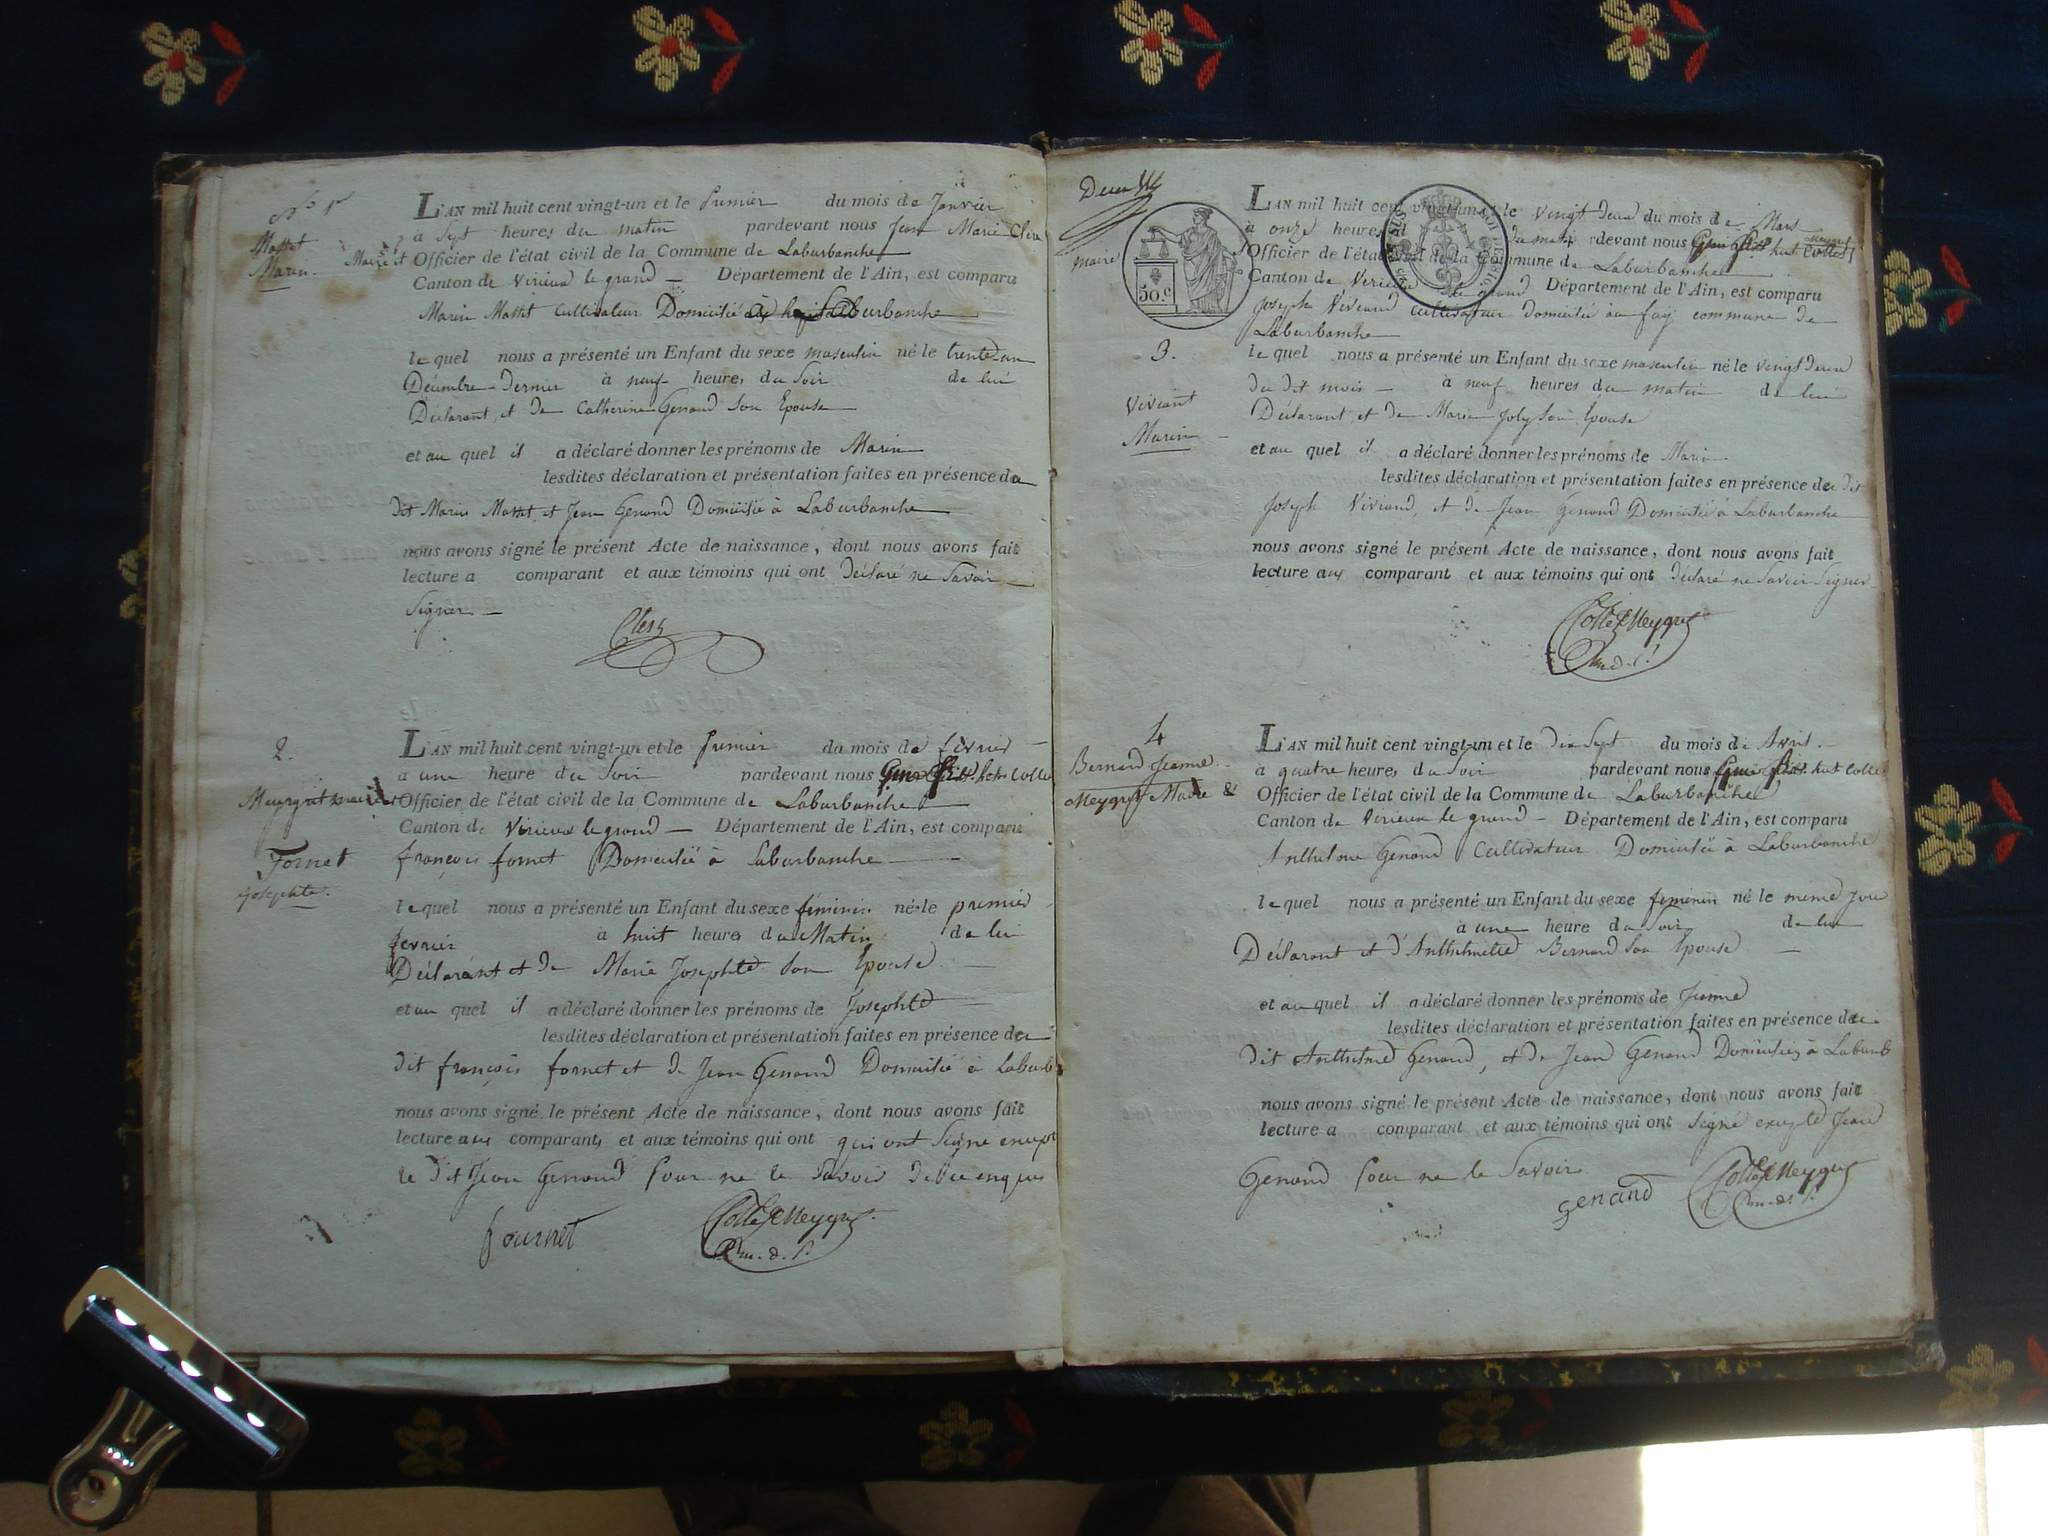 N° 1er
Mattet
Marin
L'AN mil huit cent vingt-un et le Premier du mois de Janvier
à Sept heures du matin pardevant nous Jean Marie Clerc
Maire et Officier de l'état civil de la Commune de Laburbanche
Canton de Virieux le grand — Département de l'Ain, est comparu
Marin Mattet Cultivateur Domicilié à Laburbanche
le quel nous a présenté un Enfant du sexe masculin né le trente un
Décembre Dernier à neuf heures du Soir de lui
Déclarant et de Catherine Genand Son Epouse
et au quel il a déclaré donner les prénoms de Marin
lesdites déclaration et présentation faites en présence du
dit Marin Mattet et Jean Genand Domicilié à Laburbanche
nous avons signé le présent Acte de naissance, dont nous avons fait
lecture a comparant et aux témoins qui ont déclaré ne Savoir
Signer —
Clerc
2.
Fornet
Josephte.
L'AN mil huit cent vingt-un et le Premier du mois de fevrier —
a une heure du Soir pardevant nous Colle
Meygret maire et Officier de l'état civil de la Commune de Laburbanche
Canton de Virieux le grand — Département de l'Ain, est comparu
françois fornet Domicilié à Laburbanche —
le quel nous a présenté un Enfant du sexe feminin né le premier
fevrier à huit heures du Matin de lui
Déclarant et de Marie Josephte Son Epouse —
et au quel il a déclaré donner les prénoms de Josephte
lesdites déclaration et présentation faites en présence du
dit françois fornet et de Jean Genand Domicilié à Laburb
nous avons signé le présent Acte de naissance, dont nous avons fait
lecture aux comparants et aux témoins qui ont qui ont Signé except
le dit Jean Genand Pour ne le Savoir De ce enquis
fournet Colle Meygret
3.
Viviant
Marin
50 c
L'AN mil huit cent vingt-un et le vingt deux du mois de Mars
à onze heures du matin pardevant nous Colle Meygret
maire Officier de l'état civil de la Commune de Laburbanche
Canton de Virieux le grand Département de l'Ain, est comparu
Joseph Viviand Cultivateur domicilié au fay commune de
Laburbanche
le quel nous a présenté un Enfant du sexe masculin né le vingt deux
du dit mois — à neuf heures du matin de lui
Déclarant et de Marie Joly Son Epouse
et au quel il a déclaré donner les prénoms de Marin
lesdites déclaration et présentation faites en présence du dit
Joseph Viviand, et de Jean Genand Domicilié à Laburbanche
nous avons signé le présent Acte de naissance, dont nous avons fait
lecture aux comparant et aux témoins qui ont déclaré ne Savoir Signer
Colle Meygret
4
Bernard Jeanne
L'AN mil huit cent vingt-un et le dix Sept du mois de Avril —
a quatre heures du Soir pardevant nous Colle
Meygret Maire & Officier de l'état civil de la Commune de Laburbanche
Canton de Virieux le grand — Département de l'Ain, est comparu
Anthelme Genand Cultivateur Domicilié à Laburbanche
le quel nous a présenté un Enfant du sexe feminin né le même Jour
à une heure du Soir de lui
Déclarant et d'Anthelmette Bernard Son Epouse —
et au quel il a déclaré donner les prénoms de Jeanne
lesdites déclaration et présentation faites en présence du
dit Anthelme Genand, et de Jean Genand Domiciliés à Laburb
nous avons signé le présent Acte de naissance, dont nous avons fait
lecture a comparant et aux témoins qui ont Signé excepté Jean
Genand Pour ne le Savoir
genand Colle Meygret